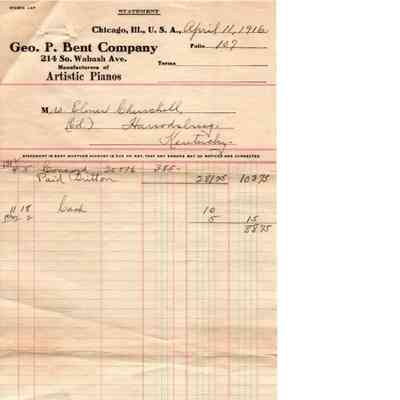 STATEMENT
Chicago, Ill., U. S. A., April 11, 1916
Geo. P. Bent Company
Folio 107
214 So. Wabash Ave.
Terms
Manufacturers of
Artistic Pianos
M Elmer Churchill
(Col.) Harrodsburg,
Kentucky.
STATEMENT IS SENT WHETHER ACCOUNT IS DUE OR NOT, THAT ANY ERRORS MAY BE NOTICED AND CORRECTED
5 20776 385-
Paid Sutton 28125 10375
11 18 Cash 10
2 5 15
8875